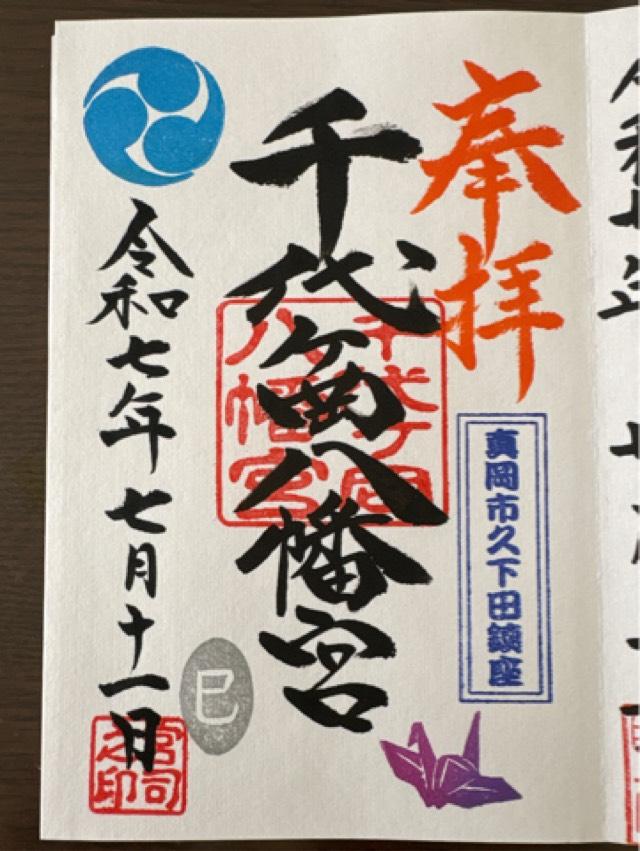 奉拝
真岡市久下田鎮座
千代ヶ岡八幡宮
千代ヶ岡
八幡宮
令和七年七月十一日
巳
宮司
之印